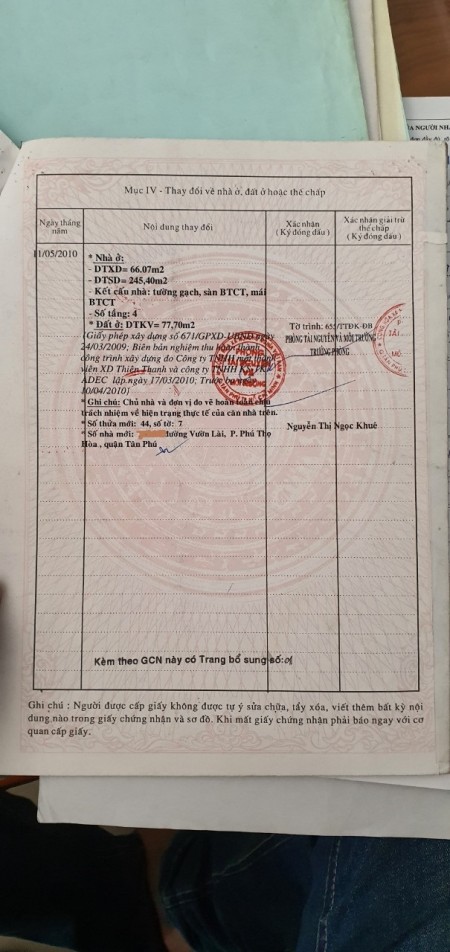 A NGƯỜI NH
Mục IV - Thay đổi về nhà ở, đất ở hoặc thế chấp
Ngày tháng năm
Nội dung thay đổi
Xác nhận
( Ký đóng dấu )
Xác nhận giải trừ thế chấp
( Ký đóng dấu )
11/05/2010
* Nhà ở:
- DTXD= 66.07m2
- DTSD= 245,40m2
- Kết cấu nhà: tường gạch, sàn BTCT, mái
BTCT
- Số tầng: 4
* Đất ở: DTKV= 77,70m2
(Giấy phép xây dựng số 671/GPXD-UBND ngày
24/03/2009; Biên bản nghiệm thu hoàn thành
công trình xây dựng do Công ty TNHH một thành
viên XD Thiên Thanh và công ty TNHH
ADEC lập ngày 17/03/2010;
10/04/2010)
* Ghi chú: Chủ nhà và đơn vị đo vẽ hoàn toàn chịu
trách nhiệm về hiện trạng thực tế của căn nhà trên.
* Số thửa mới: 44, số tờ: 7
* Số nhà mới: đường Vườn Lài, P. Phú Thọ
Hòa , quận Tân Phú
Tờ trình: 655/TTĐK-ĐB
PHÒNG TÀI NGUYÊN VÀ MÔI TRƯỜNG
TRƯỞNG PHÒNG
Nguyễn Thị Ngọc Khuê
Kèm theo GCN này có Trang bổ sung số: 01
Ghi chú : Người được cấp giấy không được tự ý sửa chữa, tẩy xóa, viết thêm bất kỳ nội
dung nào trong giấy chứng nhận và sơ đồ. Khi mất giấy chứng nhận phải báo ngay với cơ
quan cấp giấy.